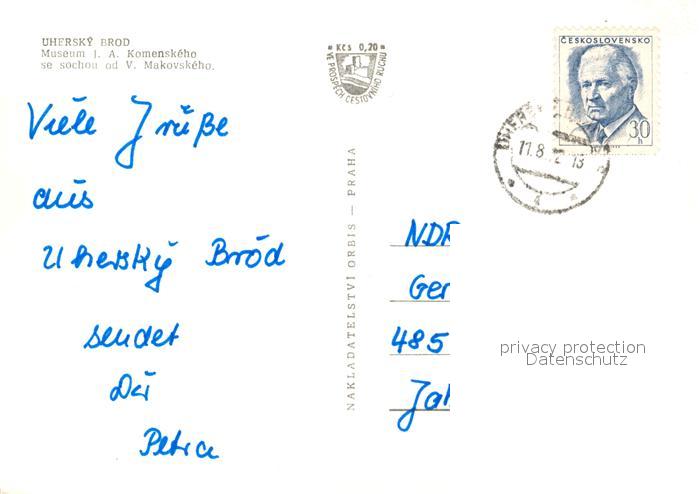 UHERSKÝ BROD
Museum J. A. Komenského
se sochou od V. Makovského.
Kčs 0,20
VE PROSPĚCH CESTOVNÍHO RUCHU
ČESKOSLOVENSKO
30
h
11.8
13
Viele Grüße
aus
Uherský Brod
sendet
Dir
Petra
NAKLADATELSTVÍ ORBIS — PRAHA
NDR
Ger
485
privacy protection
Datenschutz